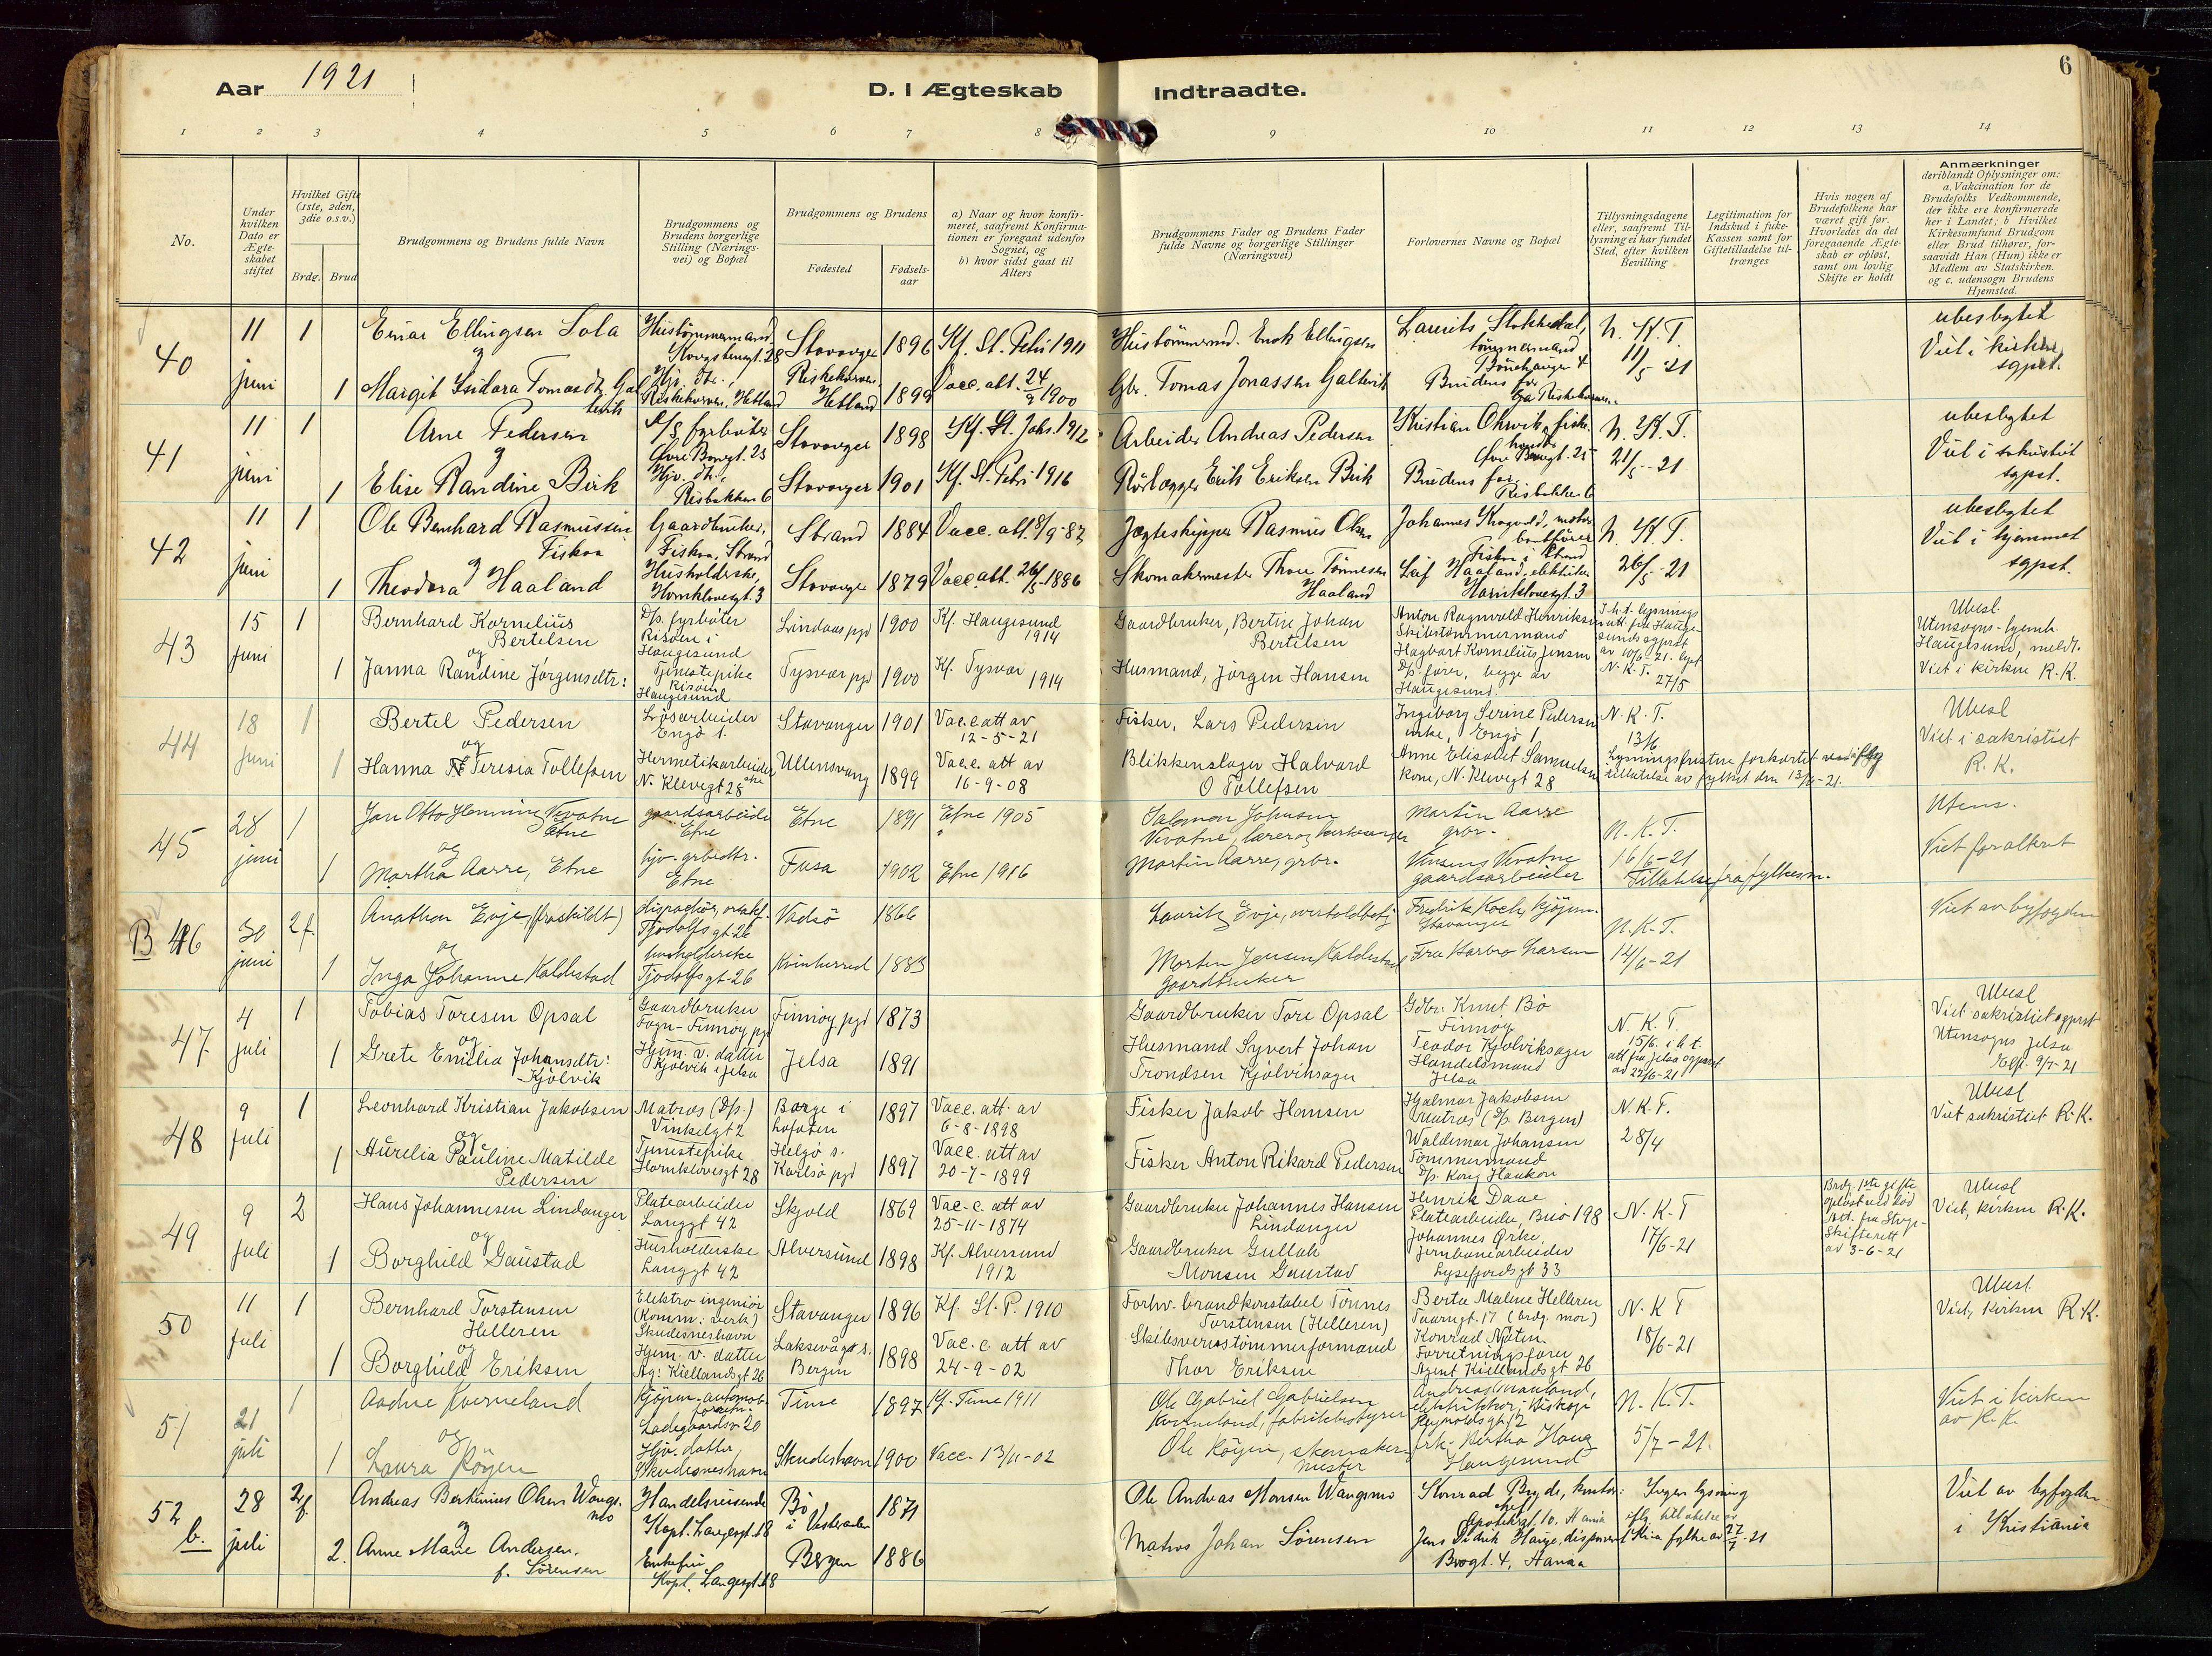 Aar 1921
D. I Ægteskab Indtraadte.
6
1 2 3 4 5 6 7 8 9 10 11 12 13 14
No.
Under hvilken Dato er Ægteskabet stiftet
Hvilket Gifte (1ste, 2den, 3die o.s.v.)
Brdg. Brud
Brudgommens og Brudens fulde Navn
Brudgommens og Brudens borgerlige Stilling (Næringsvei) og Bopæl
Brudgommens og Brudens
Fødested
Fødselsaar
a) Naar og hvor konfirmeret, saafremt Konfirmationen er foregaat udenfor Sognet, og
b) hvor sidst gaat til Alters
Brudgommens Fader og Brudens Fader fulde Navne og borgerlige Stillinger (Næringsvei)
Forlovernes Navne og Bopæl
Tillysningsdagene eller, saafremt Tillysning ei har fundet Sted, efter hvilken Bevilling
Legitimation for Indskud i fuke-Kassen samt for Giftetilladelse tiltrænges
Hvis nogen af Brudefolkene har været gift før. Hvorledes da det foregaaende Ægteskab er opløst, samt om lovlig Skifte er holdt
Anmærkninger deriblandt Oplysninger om: a. Vakcination for de Brudefolks Vedkommende, der ikke ere konfirmerede her i Landet; b Hvilket Kirkesamfund Brudgom eller Brud tilhører, forsaavidt Han (Hun) ikke er Medlem av Statskirken. og c. udensogn Brudens Hjemsted.
40 11 juni 1 Einar Ellingsen Sola Hustømmermand Stavanger 1896 Kf. St. Petri 1911 Hustømmermd. Enok Ellingsen Laurits Stokkedal, tømmermand N. K. T. 11/5 21 ubeslegtet
og
1 Margit Isidora Tomasdtr. Hjv. dtr., Hetland 1899 Vacc. att. 24/9 1900 Gbr. Tomas Jonassen Galtevik Brudens far Viet i kirken sgpst.
41 11 juni 1 Arne Pedersen D/S fyrbøter Øvre Stavanger 1898 Kf. St. Johs. 1912 Arbeider Andreas Pedersen Kristian N. K. T. 21/5-21 ubeslegtet
og
1 Elise Randine Birk Hjv. dtr., Risbakken 6 Stavanger 1901 Kf. St. Petri 1916 Rørlægger Erik Eriksen Birk Brudens far, Risbakken 6 Viet i sakristiet sgpst.
42 11 juni 1 Ole Bernhard Rasmussen Fiskaa Gaardbruker, Fiskaa, Strand Strand 1884 Vacc. att. 8/9-87 Jægteskipper Rasmus Olsen Johannes N. K. T. 26/5-21 ubeslegtet
og
1 Theodora Haaland Husholderske, Hornklovesgt. 3 Stavanger 1879 Vacc att. 26/5-1886 Skomakermester Thore Tønnesen Haaland Leif Haaland, elektriker Hornklovesgt. 3 Viet i hjemmet sgpst.
43 15 juni 1 Bernhard Kornelius Bertelsen D/s. fyrbøter Risøen i Haugesund Lindaas pgd 1900 Kf. Haugesund 1914 Gaardbruker, Bertin Johan Bertelsen Anton Ragnvald Henriksen Skibstømmermand I.h.t. lysnings att. fra Haugesunds sgprst av 10/6-21. lyst Ubesl. Utensogns - hjemh. Haugesund, meldt.
og
1 Janna Randine Jørgensdtr: Tjenestepike Risøen Haugesund Tysvær pgd 1900 Kf. Tysvær 1914 Husmand, Jørgen Hansen Hagbart Kornelius Jensen D/s fører, begge av Haugesund. N. K. T. 27/5 Viet i kirken R. K.
44 18 juni 1 Bertel Pedersen Løsarbeider Engø 1. Stavanger 1901 Vac.c att av 12-5-21 Fisker, Lars Pedersen Ingeborg Serine Pedersen enke, Engø 1 N. K. T. 13/6 Ubesl
og
1 Hanna Teresia Tollefsen Hermetikarbeider N. Klevegt 28 Ullensvang 1899 Vac.c. att av 16-9-08 Blikkenslager Halvard O Tollefsen Anne Elisabet Samuelsen kone, N. Klevegt 28 Lysningsfristen forkortet iflg tillatelse av fylket den 13/6-21. Viet i sakristiet R. K.
45 28 juni 1 Jon Otto Henning Vevatne Etne gaardsarbeider Etne Etne 1891 Etne 1905 Salomon Johnsen Vevatne, lærer og kirkesanger Martin Aarre grbr. N. K. T. 16/6-21 Utens.
og
1 Martha Aarre, Etne hjv. grbrdtr. Etne Fusa 1902 Etne 1916 Martin Aarre, grbr. Vevatne gaardsarbeider Tillatelse fra fylkesm. Viet for alteret
B 46 30 juni 2 f. Anathon Evje, (fraskildt) Tjodolfsgt. 26 Vadsø 1866 Lauritz Evje, overtoldbetj Fredrik Koch, kjøpm. Stavanger N. K. T. 14/6-21 Viet av byfogden
og
1 Inga Johanne Kaldestad husholderske Tjodolfsgt. 26 Kvinherred 1883 Morten Jensen Kaldestad gaardbruker Fru Barbro Larsen
47. 4 juli 1 Tobias Toresen Opsal Gaardbruker Fogn - Finnøy pgd Finnøy pgd 1873 Gaardbruker Tore Opsal Gdbr. Knut Bø Finnøy N. K. T. 15/6. i h. t. att fra Jelsa sgprst av 22/6-21 Ubesl Viet sakristiet sgprst
og
1 Grete Emilia Johansdtr: Kjølvik Hjem. v. datter Kjølvik i Jelsa Jelsa 1891 Husmand Syvert Johan Trondsen Kjølviksager Teodor Kjølviksager Handelsmand Jelsa Utensogns Jelsa 9/7-21
48 9 juli 1 Leonhard Kristian Jakobsen Matros (D/s.) Vinkelgt 2 Borge i Lofoten 1897 Vacc. att. av 6-8-1898 Fisker Jakob Hansen Hjalmar Jakobsen Matros (D/s Bergen) N. K. T. 28/4 Ubesl Viet sakristiet R. K.
og
1 Aurelia Pauline Matilde Pedersen Tjenestepike Hornklovesgt 28 Helgø s. Karlsø pgd 1897 Vacc. att av 20-7-1899 Fisker Anton Rikard Pedersen Waldemar Johansen Tømmermand D/s. Kong Haakon
49 9 juli 2 Hans Johannesen Lindanger Platearbeider Langgt 42 Skjold 1869 Vac.c. att av 25-11-1874 Gaardbruker Johannes Hansen Lindanger Henrik Daae Platearbeider, Buø 198 N. K. T 17/6-21 Brdg. 1ste gifte opløst ved død Att. fra Stvgr. Skifterett av 3-6-21 Ubesl Viet, kirken R. K.
og
1 Borghild Gaustad Husholderske Langgt 42 Alversund 1898 Kf. Alversund 1912 Gaardbruker Gullak Monsen Gaustad Johannes Ørke, Jernbanearbeider Lysefjordsgt 33
50 11 juli 1 Bernhard Torstensen Helleren Elektro ingeniør (Komm: verk) Skudesneshavn Stavanger 1896 Kf. St. P. 1910 Forhv. brandkonstabel Tønnes Torstensen (Helleren) Berta Maline Helleren (brdg. mor) N. K T 18/6-21 Ubesl Viet, kirken R. K.
og
1 Borghild Eriksen Hjem. v. datter Ag: Kiellandsgt 26 Laksevåg s. Bergen 1898 Vac.c. att av 24-9-02 Skibsverftstømmerformand Thor Eriksen Konrad Forretningsfører Agent Kiellandsgt 26
51 21 juli 1 Aadne Kverneland kjøpm. automob. forretn. Ladegaardsv. 20 Time 1897 Kf. Time 1911 Ole Gabriel Gabrielsen Kverneland, fabrikbestyrer Andreas N. K. T. 5/7-21. Viet i kirken av R. K.
og
1 Laura Køyen Hjv. datter, Skudesneshavn Skudeshavn 1900 Vacc. 13/11-02 Ole Køyen, skomakermester frk. Bertha Haug Haugesund
52 b. 28 juli 2 f. Andreas Bertinius Olsen Wangsmo Handelsreisende Kopt. Langesgt. 18 Bø i Vesteraalen 1871 Ole Andreas Monsen Wangsmo Konrad Bryde, kontor: chef Ingen lysning iflg. tillatelse av Kr.a fylke av 27/7-21 Viet av byfogden
og
2. Anne Marie Andersen. f. Sørensen Enkefru Kopt. Langesgt. 18 Bergen 1886 Matros Johan Sørensen Jens Didrik Hauge, disponent Brogt. 4, i Kristiania